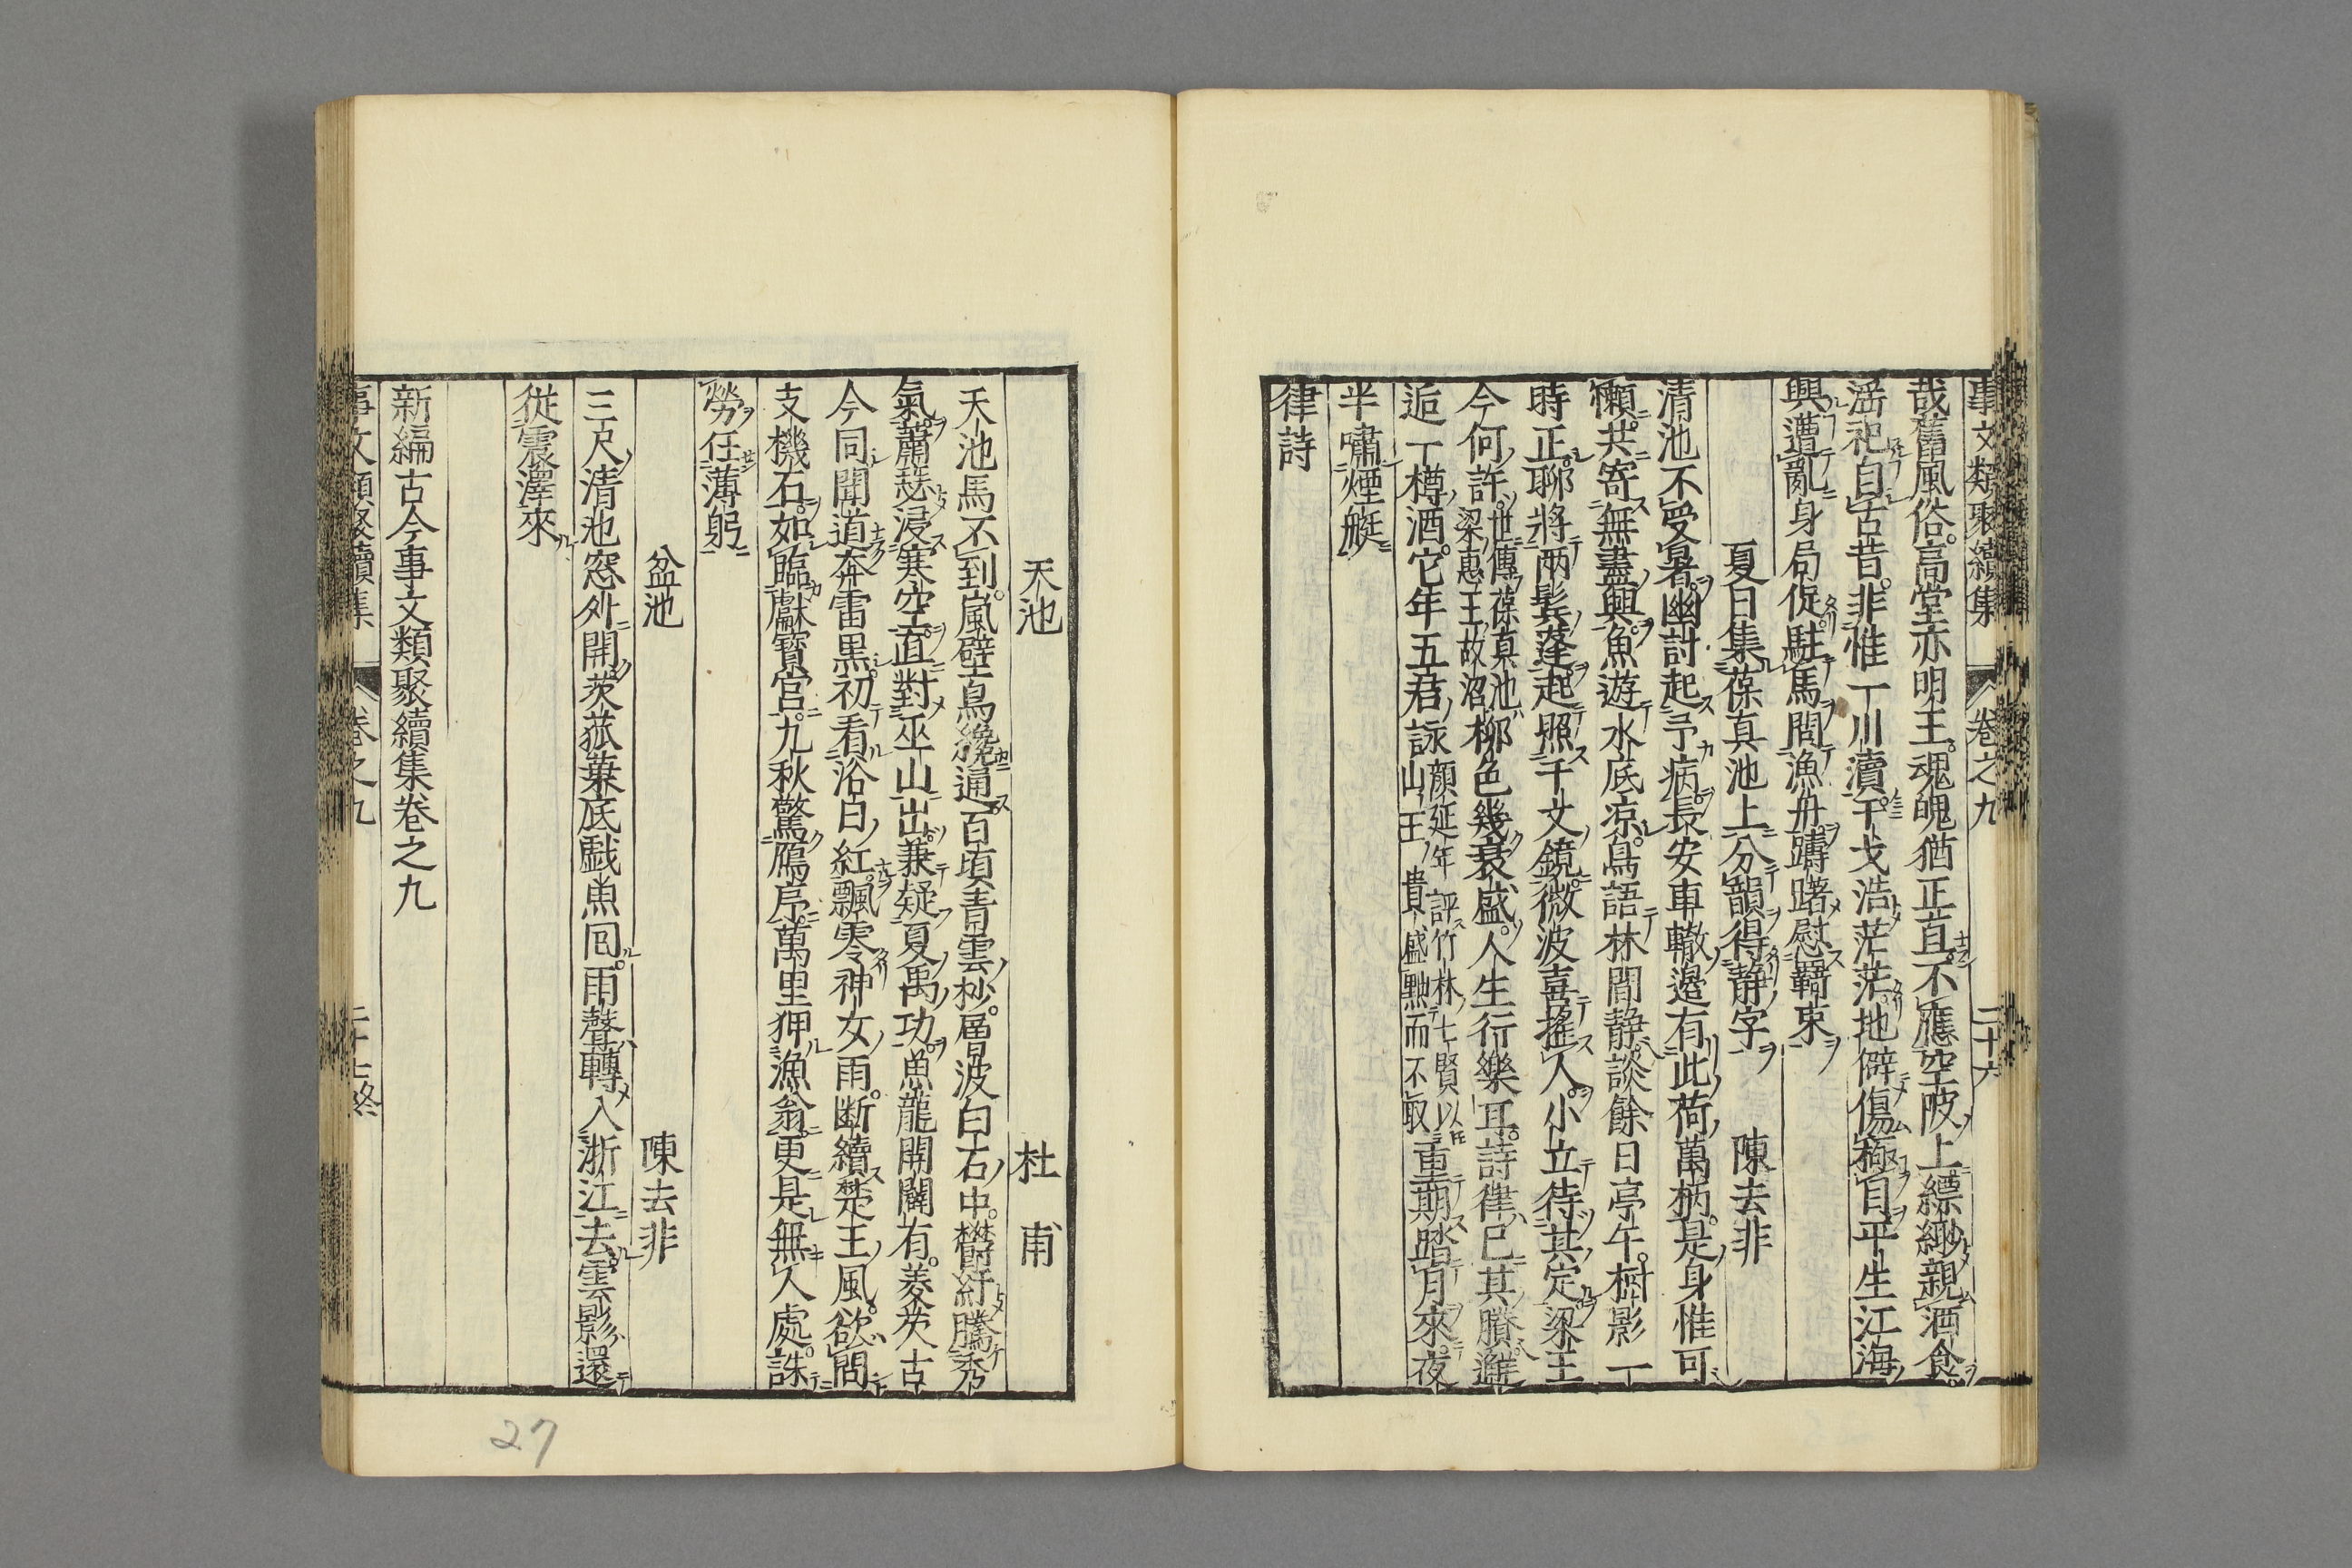 事文類聚續集 卷之九 二十六
哉舊風俗高堂亦明王魂魄猶正直不應空陂上縹緲親酒食
淫祀自古昔非惟一川瀆干戈浩茫茫地僻傷極目平生江海
興遭亂身局促駐馬問漁舟躊躇慰羇束
夏日集葆真池上分韻得静字 陳去非
清池不受暑幽討起予病長安車轍邊有此荷萬柄是身惟可
懶共寄無盡興魚遊水底凉鳥語林間静談餘日亭午樹影一
時正聊將兩鬂蓬起照千丈鏡微波喜搖人小立待其定梁王
今何許世傳葆真池梁惠王故沼柳色幾衰盛人生行樂耳詩律已其賸邂
逅一樽酒它年五君詠顔延年評竹林七賢以山王貴盛黜而不取重期踏月來夜
半嘯煙艇
律詩
天池 杜甫
天池馬不到嵐壁鳥纔通百頃青雲杪層波白石中欎紆騰秀
氣蕭瑟浸寒空直對巫山出兼疑夏禹功魚龍開闢有菱芡古
今同聞道奔雷黒初看浴日紅飄零神女雨斷續楚王風欲問
支機石如臨獻寳宮九秋驚鴈序萬里狎漁翁更是無人處誅
勞任薄躬
盆池 陳去非
三尺清池窓外開茨菰葉底戯魚囘雨聲轉入浙江去雲影還
從震澤來
新編古今事文類聚續集卷之九
事文類聚續集 卷之九 二十七終
27